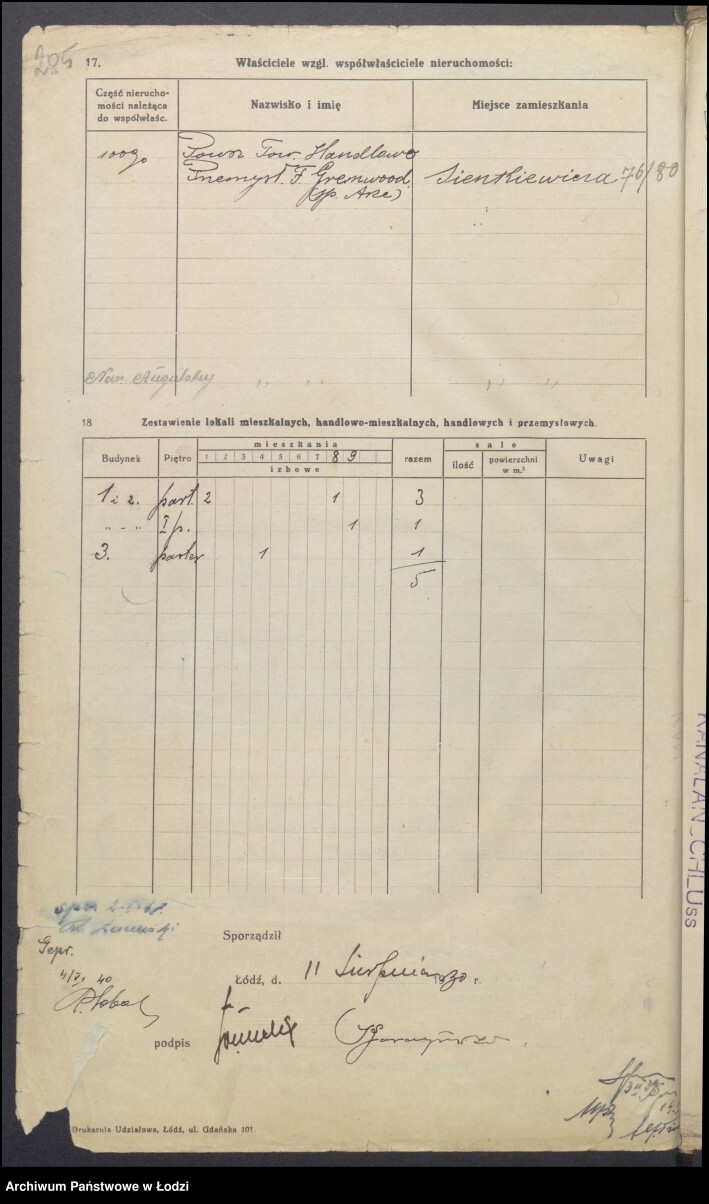 205
17. Właściciele wzgl. współwłaściciele nieruchomości:
Część nierucho-
mości należąca
do współwłaśc.
Nazwisko i imię
Miejsce zamieszkania
100%
Tow. Handlowo
Przemysł. F. Greenwood
Sienkiewicza 76/80
(Sp. Akc)
18. Zestawienie lokali mieszkalnych, handlowo-mieszkalnych, handlowych i przemysłowych.
Budynek Piętro mieszkania razem sale Uwagi
1 2 3 4 5 6 7 8 9
izbowe
ilość powierzchni
w m.²
1 i 2. part. 2 1 3
" - " I p. 1 1
3. parter 1 1
5
Sporządził
Gepr.
Łódź, d. 11 Sierpnia 1930 r.
4/VI. 40
podpis
KANALANSCHLUSS
Drukarnia Udziałowa, Łódź, ul. Gdańska 101.
Archiwum Państwowe w Łodzi